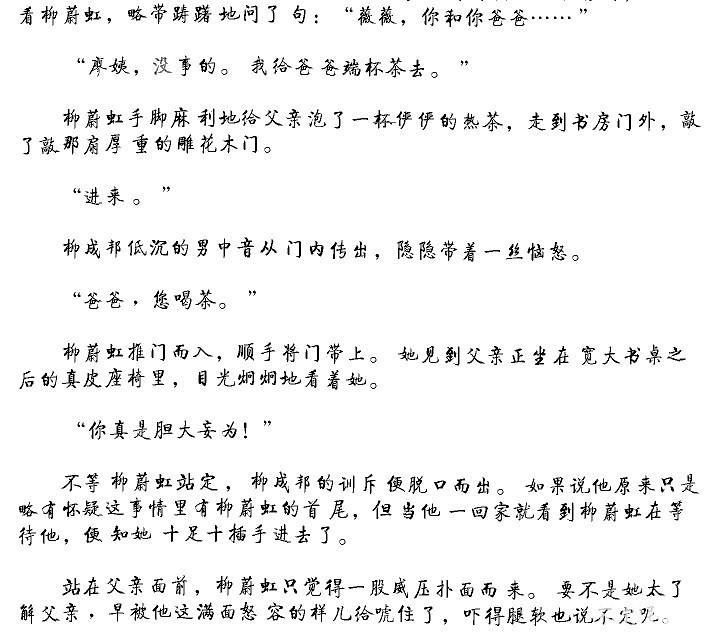 看柳蔚虹，略带踌躇地问了句：“薇薇，你和你爸爸……”
“廖姨，没事的。我给爸爸端杯茶去。”
柳蔚虹手脚麻利地给父亲泡了一杯俨俨的热茶，走到书房门外，敲
了敲那扇厚重的雕花木门。
“进来。”
柳成邦低沉的男中音从门内传出，隐隐带着一丝恼怒。
“爸爸，您喝茶。”
柳蔚虹推门而入，顺手将门带上。她见到父亲正坐在宽大书桌之
后的真皮座椅里，目光炯炯地看着她。
“你真是胆大妄为！”
不等柳蔚虹站定，柳成邦的训斥便脱口而出。如果说他原来只是
略有怀疑这事情里有柳蔚虹的首尾，但当他一回家就看到柳蔚虹在等
待他，便知她十足十插手进去了。
站在父亲面前，柳蔚虹只觉得一股威压扑面而来。要不是她太了
解父亲，早被他这满面怒容的样儿给唬住了，吓得腿软也说不定呢。